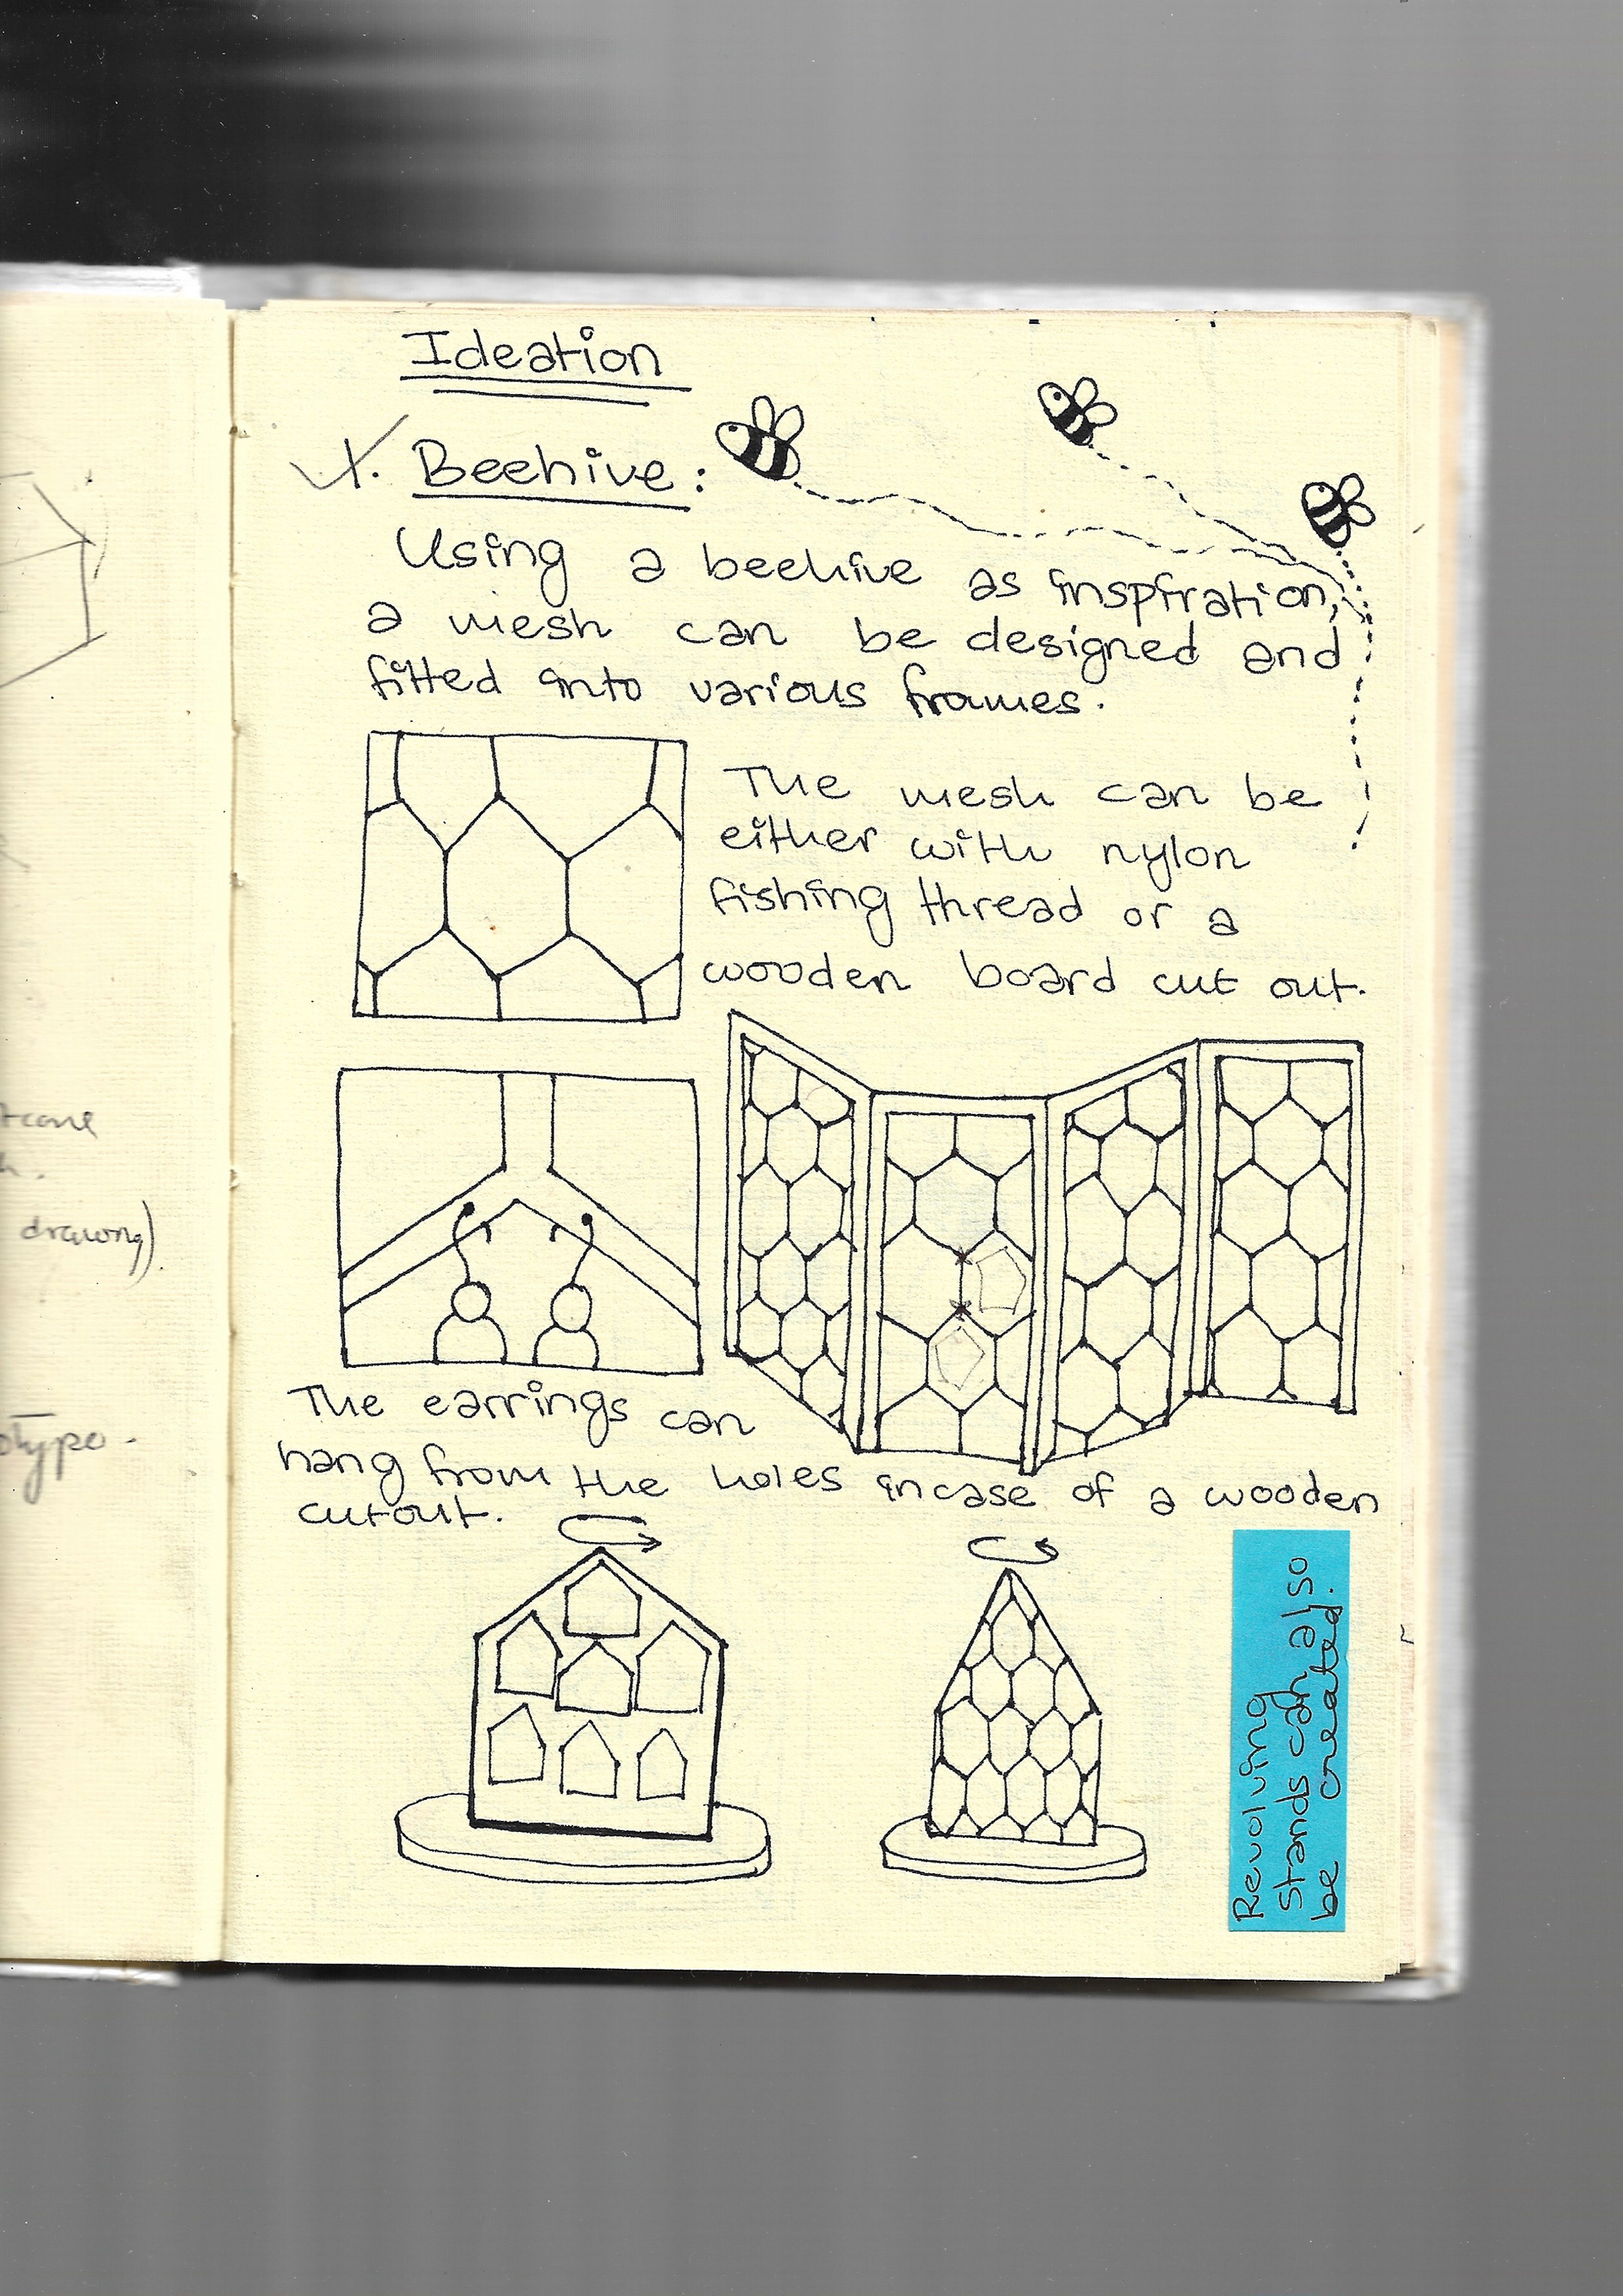 Ideation
1. Beehive:
Using a beehive as inspiration,
a mesh can be designed and
fitted into various frames.
The mesh can be
either with nylon
fishing thread or a
wooden board cut out.
The earrings can
hang from the holes incase of a wooden
cutout.
Revolving
stands can also
be created.
drawing).